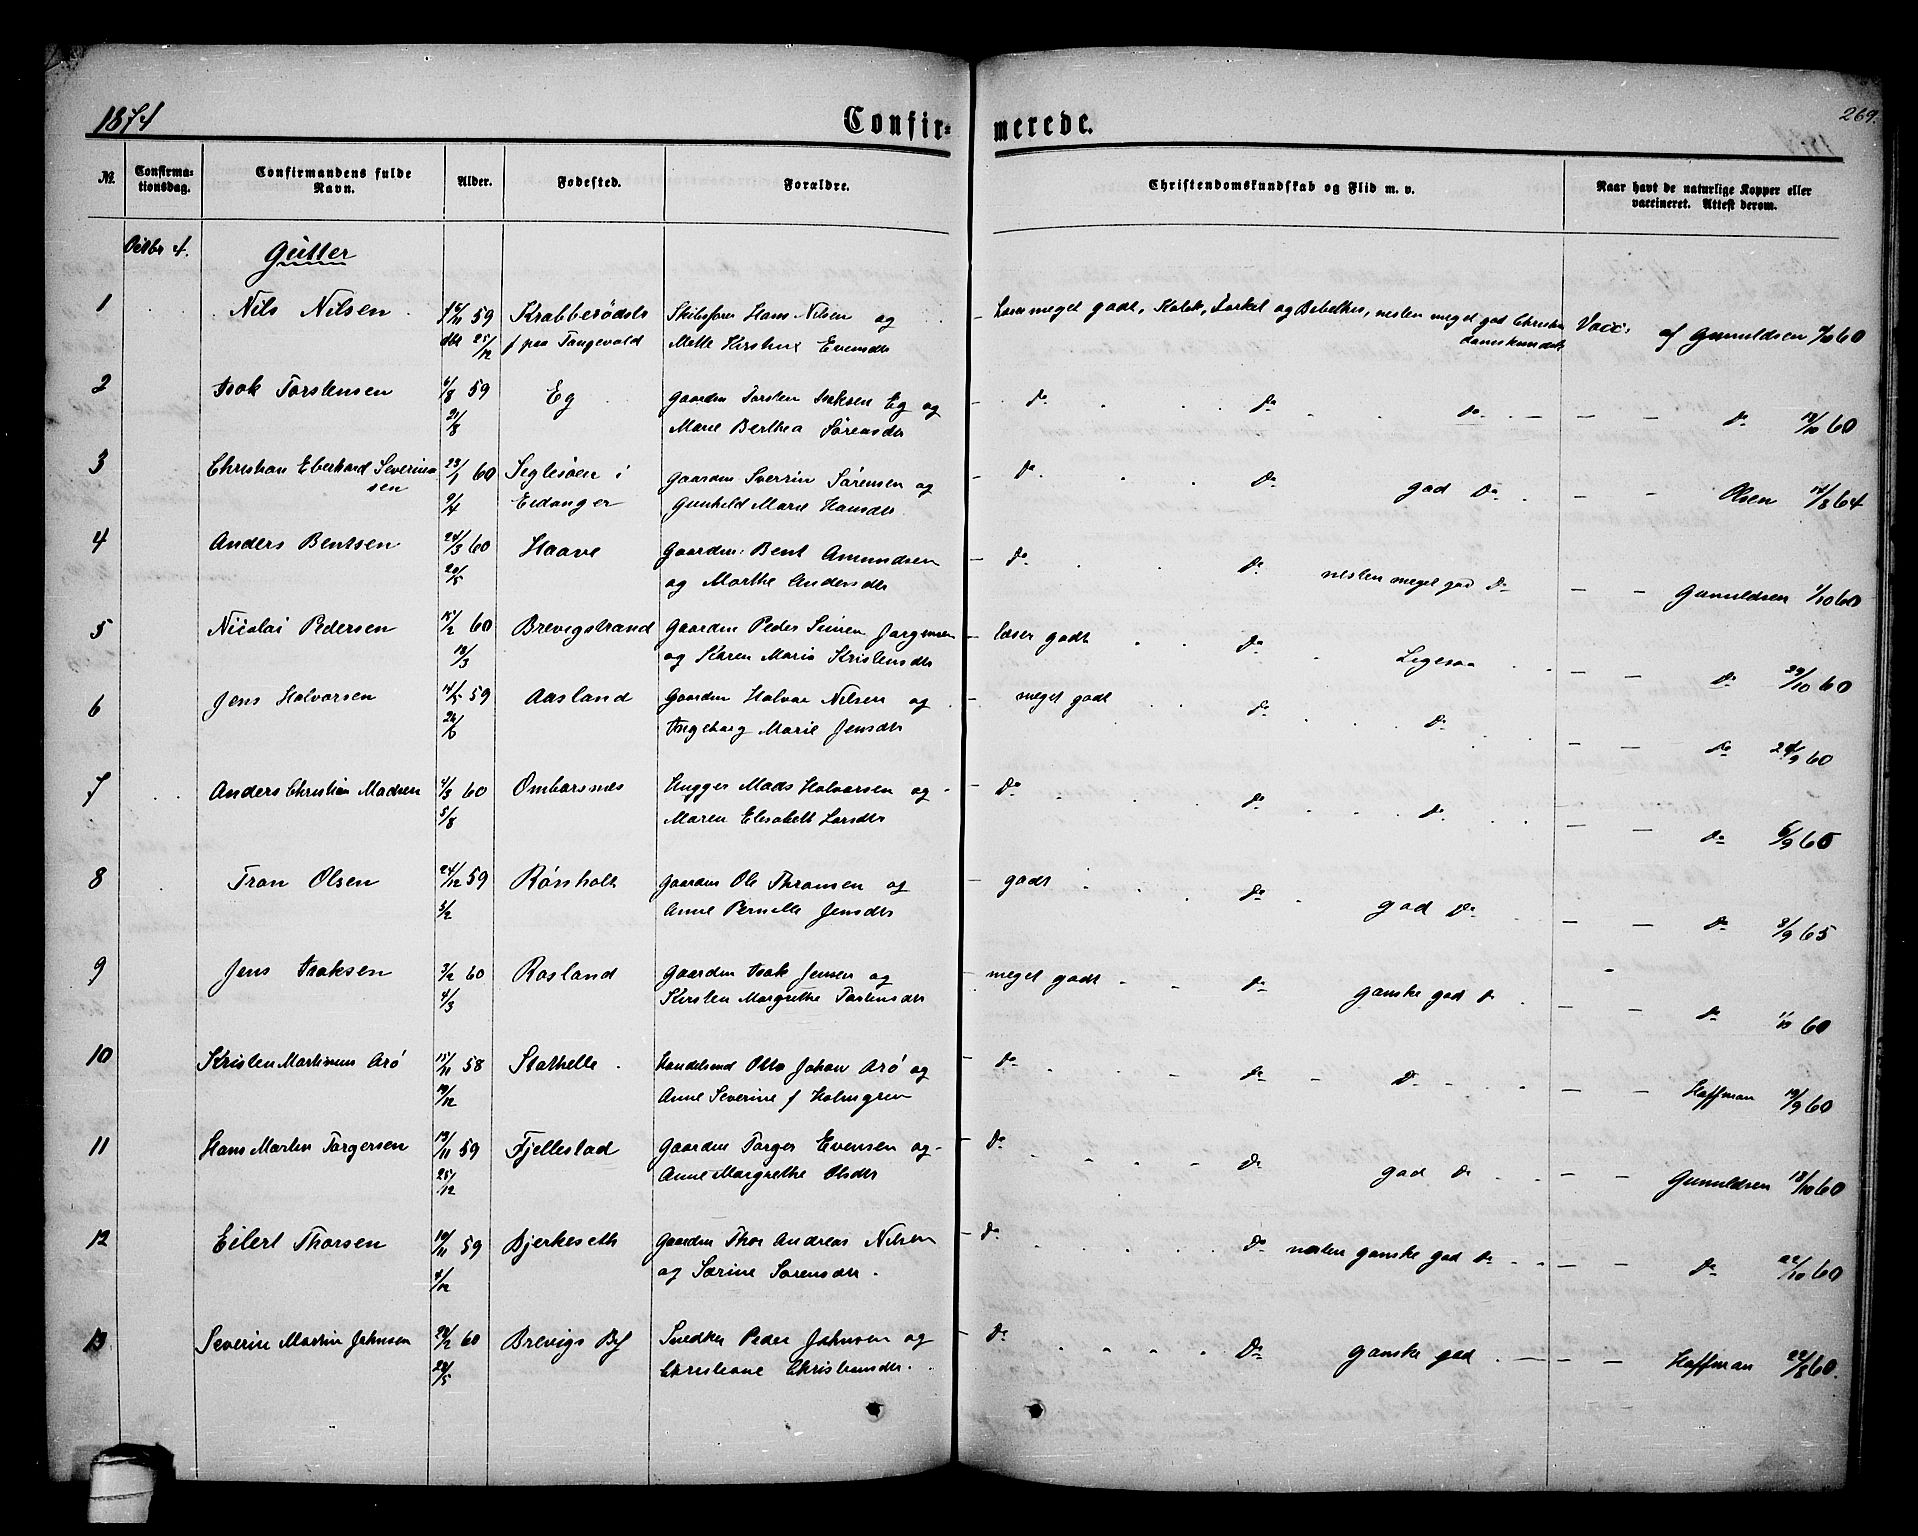 1874
Confir-
merede.
269.
No.
Confirma-
tionsdag.
Confirmandens fulde
Navn.
Alder.
Fødested.
Forældre.
Christendomskundskab og Flid m. v.
Naar havt de naturlige Kopper eller
vaccineret. Attest derom.
Octbr 4.
Gutter
1 Nils Nilsen 59 Krabberødsls Skibsfører Hans Nilsen og
dbt 25/12 f paa Tangevald Mette Kirstine Evensdtr
meget godt, Katek, Forkl og Bibelhis, nesten meget god Christen Vacc. af Gunuldsen 60
2 Isak Torstensen 6/3 59 Eg Gaardm Torsten Isaksen Eg og
21/8 Marie Berthea Sørensdtr
Do Do Do — — — Do 60
3 Christian Eberhard Severin 23/1 60 Seglsøen i Gaardm Sverrin Sørensen og
sen 9/4 Eidanger Gunhild Marie Hansdtr
Do Do god Do — — Olsen 14/8 64
4 Anders Bentsen 24/3 60 Haave Gaardm. Bent Amundsen
20/5 og Marthe Andersdtr
Do Do nesten meget god Do — — Gunuldsen 1/10 60
5 Nicolai Pedersen 15/2 60 Brevigstrand Gaardm Peder Simen Jørgensen
18/3 og Karen Maria Kristensdtr
læser godt Do Ligesaa — — Do 29/10 60
6 Jens Halvorsen 14/5 59 Aasland Gaardm Halvor Nilsen og
26/6 Ingeborg Marie Jensdtr
meget godt Do Do — — Do 24/9 60
7 Anders Christian Madsen 4/3 60 Ombarsnes Hugger Mads Halvorsen og
5/8 Maren Elisabeth Larsdtr
Do Do Do — — Do 6/9 60
8 Tron Olsen 24/12 59 Rønholt Gaardm Ole Thronsen og
5/2 Anne Pernille Jensdtr
godt Do god Do — — Do 8/9 65
9 Jens Isaksen 3/2 60 Rosland Gaardm Isak Jensen og
4/3 Kirsten Margrethe Torstensdtr
meget godt Do ganske god Do — — Do 1/10 60
10 Kristen Martinius Arø 15/11 58 Stathelle Handelsmd Otto Johan Arø og
19/12 Anne Severine f Holmgren
Do Do Do — — Hoffman 19/9 60
11 Hans Martin Torgersen 13/11 59 Fjellestad Gaardm Torger Evensen og
25/12 Anne Margrethe Olsdtr
Do Do god Do — — Gunuldsen 18/10 60
12 Eilert Thorsen 10/11 59 Bjerkeseth Gaardm Thor Andreas Nilsen
4/12 og Sørine Sørensdtr
Do Do nesten ganske god Do — — Do 22/10 60
13 Severin Martin Johnsen 28/2 60 Brevigs By Snedker Peder Johnsen og
28/5 Christiane Christensdtr
Do Do ganske god — — Hoffman 22/8 60.